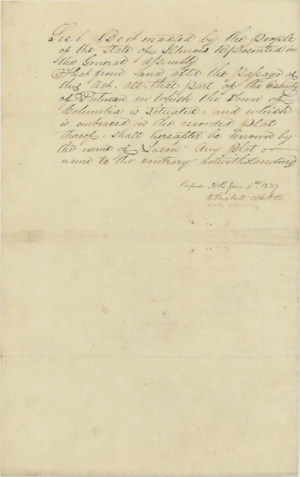 Sec. 1 Be it enacted by the People
of the State of Illinois represented in
the General Assembly
That from and after the Passage of
this Act, all that part of the County
of Putnam in which the Town of
Columbia is situated, and which
is embraced in the recorded plat
thereof, shall hereafter be known by
the name of Lacon any plat or
name to the contrary notwithstanding
Passed H. R. Jany 1837